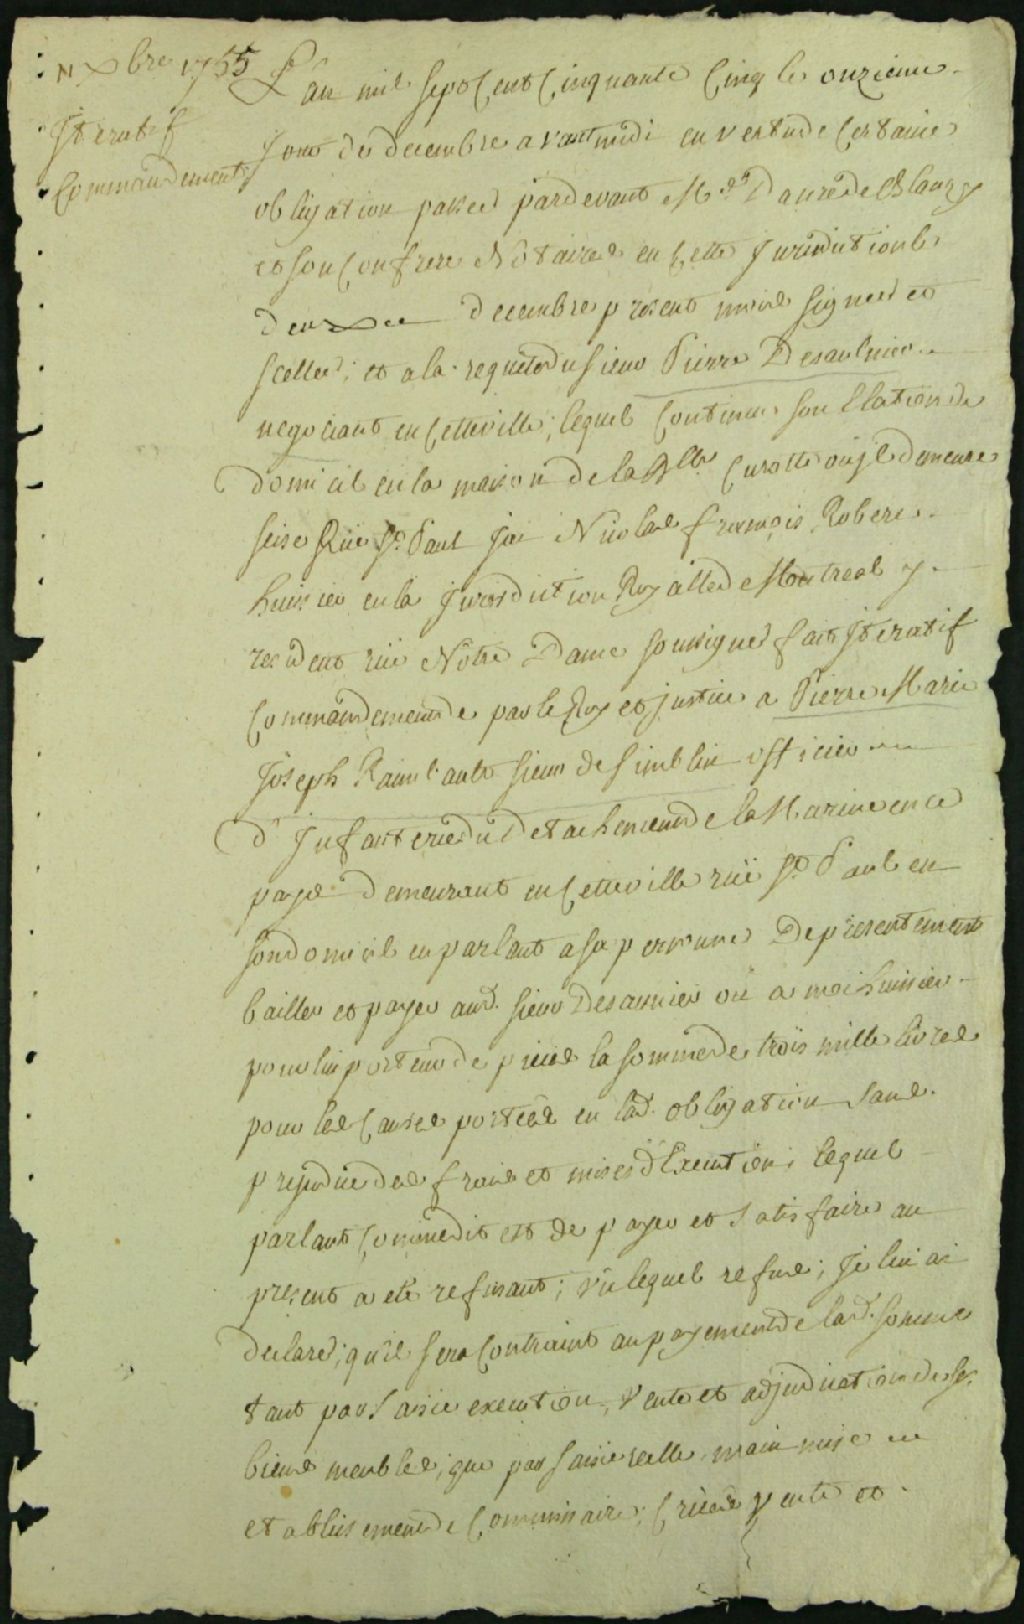 11 Xbre 1755
Iteratif
Commandement
L'an mil sept Cent Cinquante Cinq le onzieme
Jour de decembre avant midi en vertu de Certaine
obligation passée pardevant Mes Danré de Blanzy
et son Confrere Notaires en Cette Jurisdiction le
deux decembre present mois signée et
scellée; et a la requete du sieur Pierre Desaulnier
negociant en Cette ville; lequel Continue son Elation de
domicil en la maison de la Curotte ou jl demeure
seise Rüe St. Paul Jai Nicolas françois Robert
huissier en la Jurisdiction Royalle de Montreal y
resident rüe Notre Dame soussigné fait Iteratif
Commandement de par le Roy et justice a Pierre Marie
Joseph Raimbault sieur de simblin officier
d'Infanterie du detachement de la Marine en ce
paÿs demeurant en Cette ville rüe St. Paul en
son domicil en parlant a sa personne De presentement
bailler et payer aud. sieur Desaunier oü a moi huissier
pour lui porteur de pieces la somme de trois mille livres
pour les Causes portées en lad. obligation sans
prejudice des frais et mises d'Execution; lequel
parlant Comme dit est de payer et satisfaire au
present a eté refusant; vü lequel refus; Je lui ai
declaré; qu'il sera Contraint au payement de lad. somme
tant par saisie execution, vente et adjudication de ses
biens meubles; que par saisie reelle, main mise
etablissement de Commissaire; Criées vente et